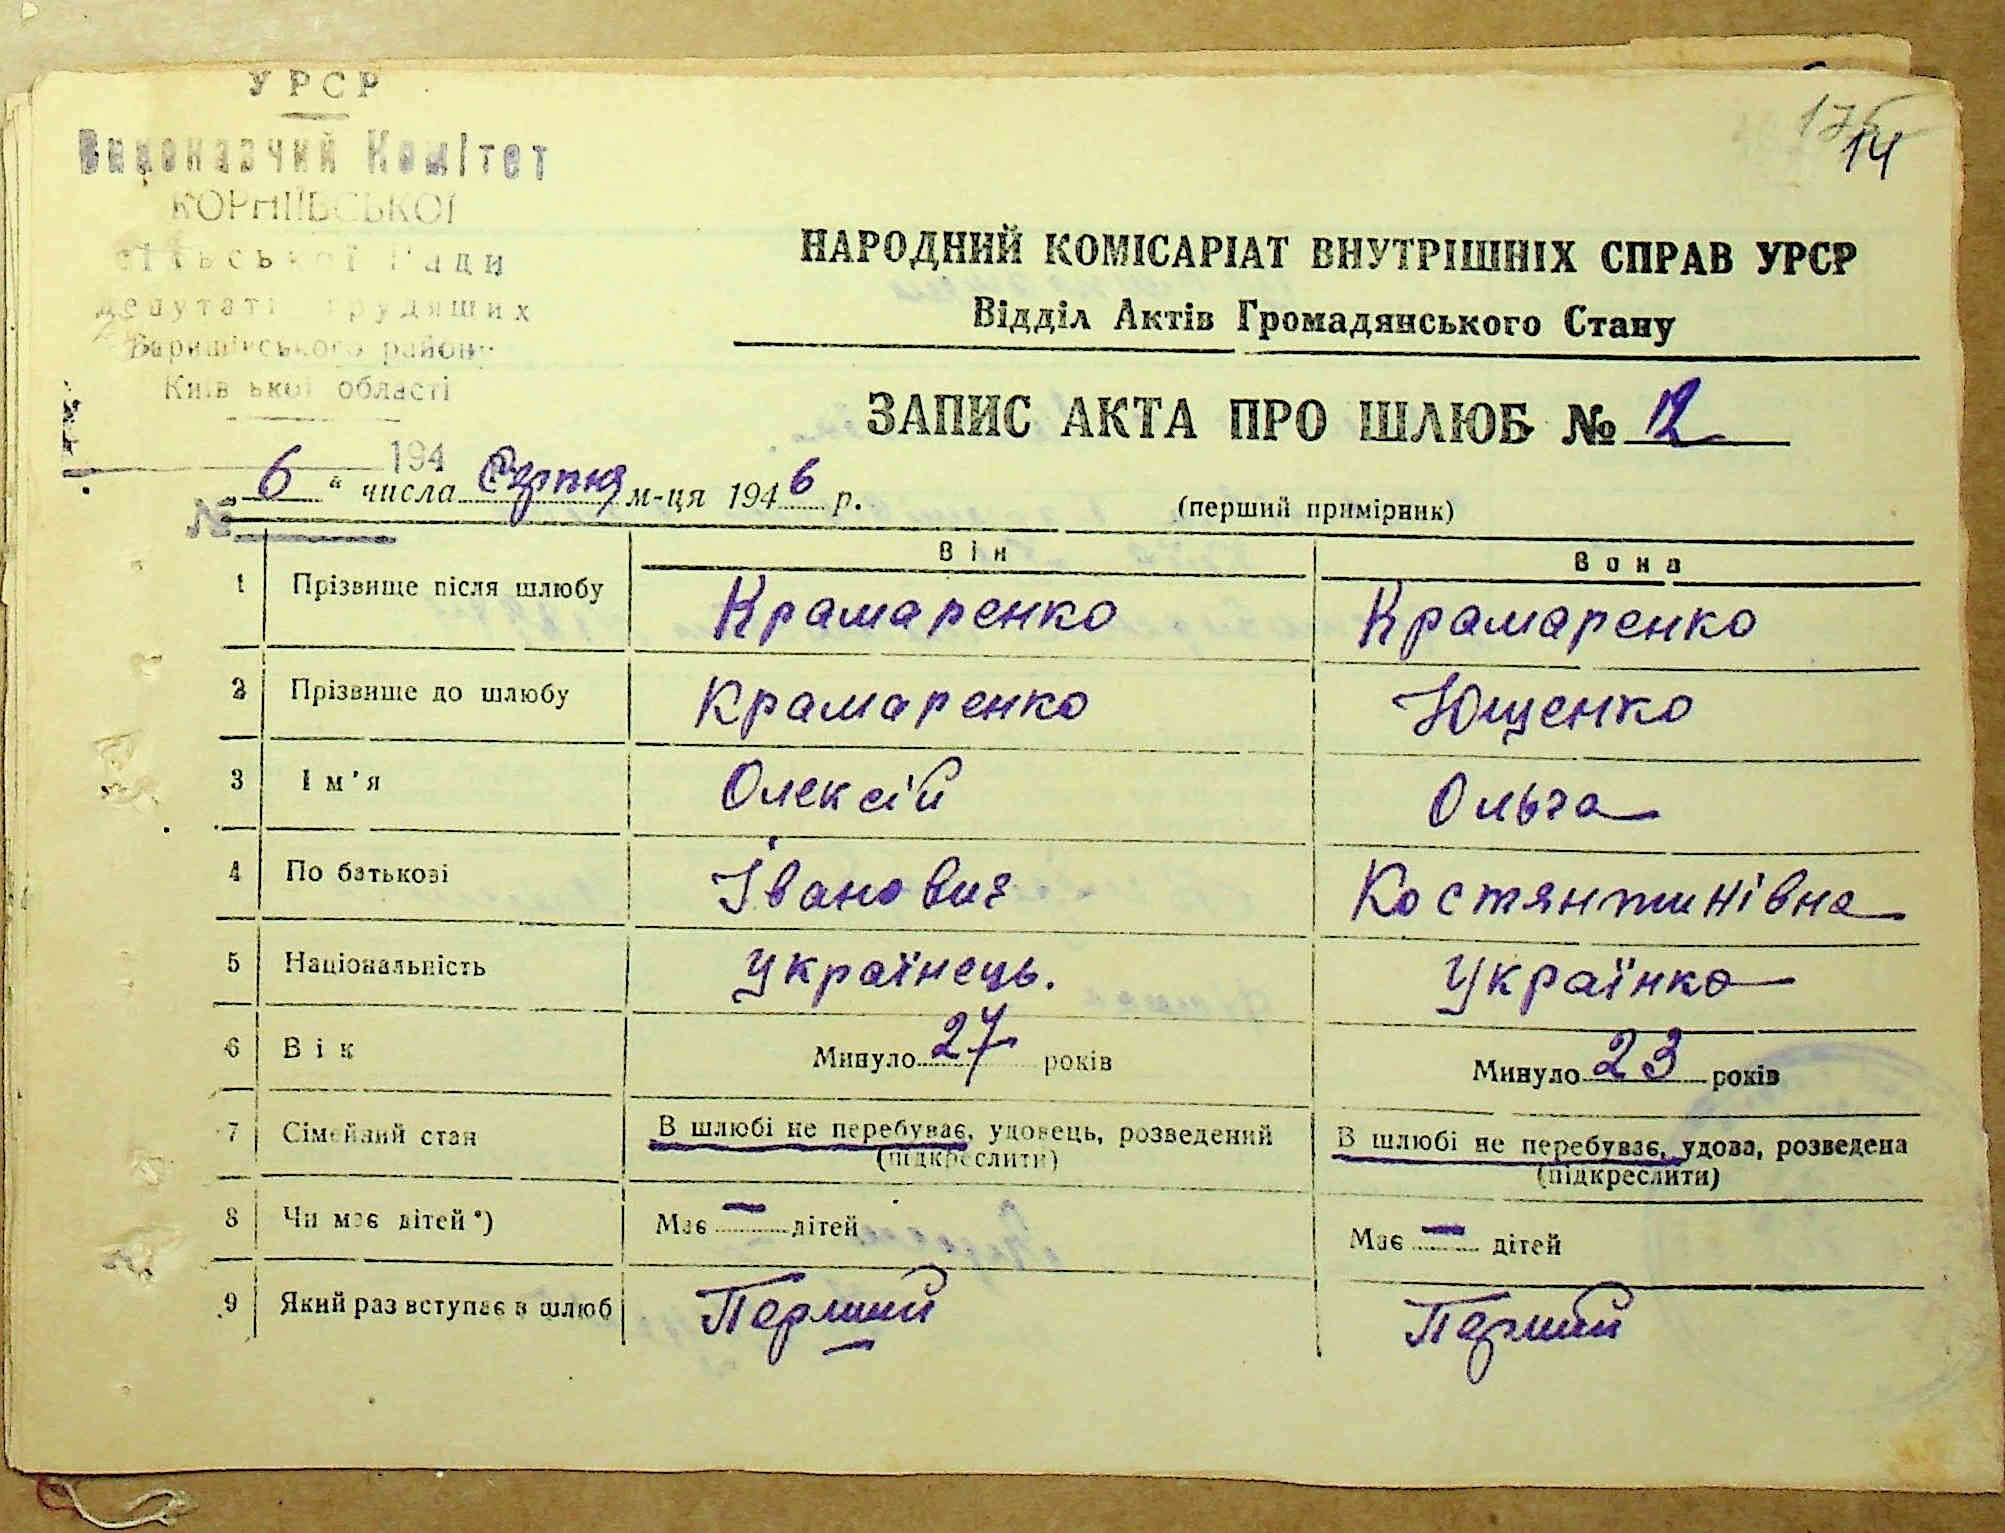 УРСР
Виконавчий Комітет
КОРНІЇВСЬКОЇ
сільської Ради
депутатів трудящих
Баришівського району
Київської області
194
№
175
14
НАРОДНИЙ КОМІСАРІАТ ВНУТРІШНІХ СПРАВ УРСР
Відділ Актів Громадянського Стану
ЗАПИС АКТА ПРО ШЛЮБ № 12
„ 6 " числа Серпня м-ця 1946 р. (перший примірник)
Він Вона
1 Прізвище після шлюбу Крамаренко Крамаренко
2 Прізвище до шлюбу Крамаренко Ющенко
3 Ім'я Олексій Ольга
4 По батькові Іванович Костянтинівна
5 Національність Українець. Українка
6 Вік Минуло 27 років Минуло 23 років
7 Сімейний стан В шлюбі не перебуває, удовець, розведений В шлюбі не перебуває, удова, розведена
(підкреслити) (підкреслити)
8 Чи має дітей*) Має — дітей Має — дітей
9 Який раз вступає в шлюб Перший Перший